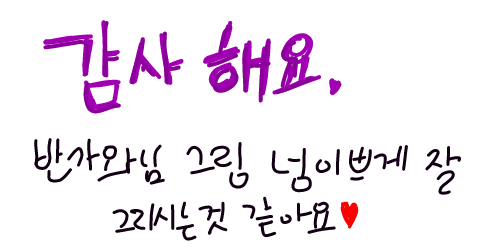 감사 해요.
반가와님 그림 넘이쁘게 잘
그리시는것 같아요♥